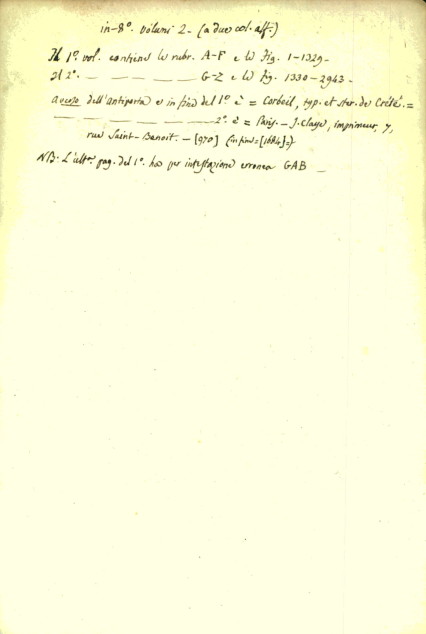 in-8º. volumi 2. (a due col. aff.)
Il 1º. vol. contiene le rubr. A-F e le fig. 1-1329.
Il 2º. — — — — — G-Z e le fig. 1330-2943.
a verso dell'antiporta e in fine del 1º è = Corbeil, typ. et ster. de Crété. =
— — — — — — — 2º. è = Paris. — J. Claye, imprimeur, 7,
rue Saint-Benoit. — [970] (in fine = [1684] =)
NB. L'ult. pag. del 1º. ha per intestazione erronea GAB —